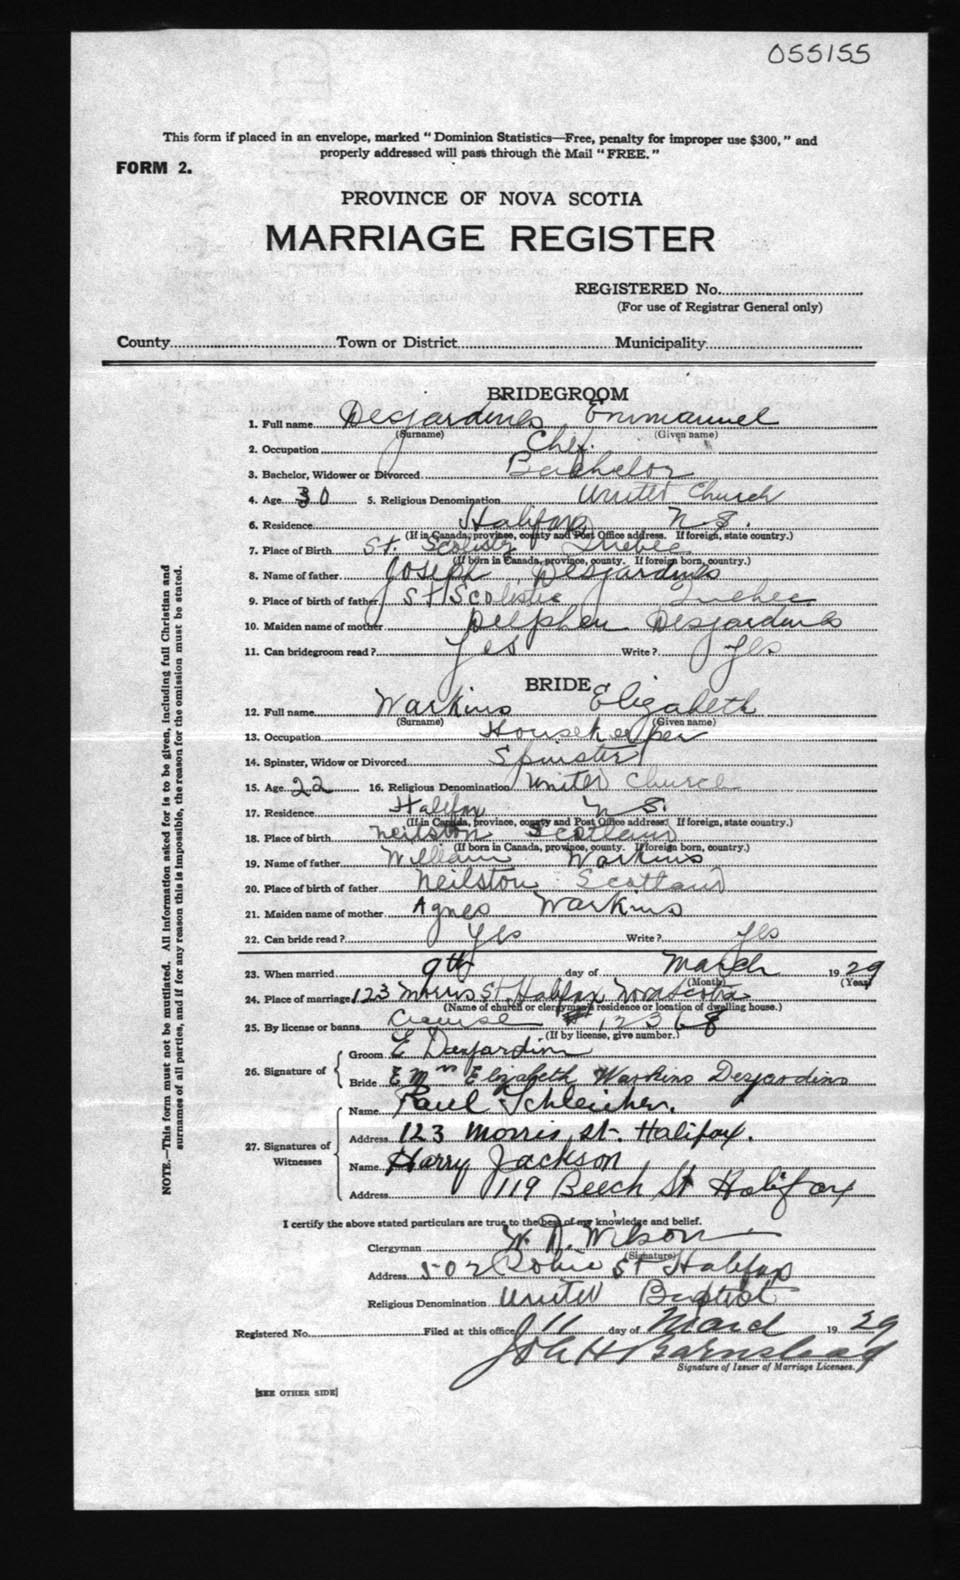 055155
This form if placed in an envelope, marked "Dominion Statistics—Free, penalty for improper use $300," and
properly addressed will pass through the Mail "FREE."
FORM 2.
PROVINCE OF NOVA SCOTIA
MARRIAGE REGISTER
REGISTERED No.
(For use of Registrar General only)
County Town or District Municipality
BRIDEGROOM
1. Full name Desjardines Emmanuel
(Surname) (Given name)
2. Occupation Chef.
3. Bachelor, Widower or Divorced Bachelor
4. Age 30 5. Religious Denomination United Church
6. Residence Halifax N.S.
(If in Canada, province, county and Post Office address. If foreign, state country.)
7. Place of Birth St. Quebec
(If born in Canada, province, county. If foreign born, country.)
8. Name of father Joseph Desjardines
9. Place of birth of father St Quebec
10. Maiden name of mother Desjardines
11. Can bridegroom read? Yes Write? Yes
BRIDE
12. Full name Warkins Elizabeth
(Surname) (Given name)
13. Occupation Housekeeper
14. Spinster, Widow or Divorced Spinster
15. Age 22 16. Religious Denomination United Church
17. Residence Halifax N.S.
(If in Canada, province, county and Post Office address. If foreign, state country.)
18. Place of birth Neilston Scotland
(If born in Canada, province, county. If foreign born, country.)
19. Name of father William Warkins
20. Place of birth of father Neilston Scotland
21. Maiden name of mother Agnes Warkins
22. Can bride read? Yes Write? Yes
23. When married 9th day of March 1929
(Month) (Year)
24. Place of marriage 123 Morris St. Halifax Nova Scotia
(Name of church or clergyman's residence or location of dwelling house.)
25. By license or banns # 12368
(If by license, give number.)
26. Signature of
Groom E Desjardins
Bride Elizabeth Warkins Desjardins
27. Signatures of Witnesses
Name Paul
Address 123 Morris St. Halifax.
Name Harry Jackson
Address 119 Beech St Halifax
I certify the above stated particulars are true to the best of my knowledge and belief.
Clergyman W. Wilson
(Signature)
Address 502 Robie St Halifax
Religious Denomination United Baptist
Registered No. Filed at this office 11 day of March 1929
H Barnstead
Signature of Issuer of Marriage Licenses.
[SEE OTHER SIDE]
NOTE.—This form must not be mutilated. All information asked for is to be given, including full Christian and
surnames of all parties, and if for any reason this is impossible, the reason for the omission must be stated.